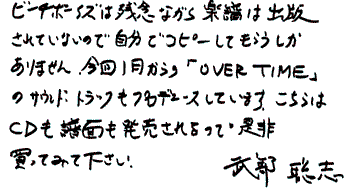 ビーチボーイズは残念ながら楽譜は出版
されていないので自分でコピーしてもらうしか
ありません。今回1月からの「OVER TIME」
のサウンドトラックもプロデュースしています。こちらは
CDも譜面も発売されるので是非
買ってみて下さい。
武部 聡志